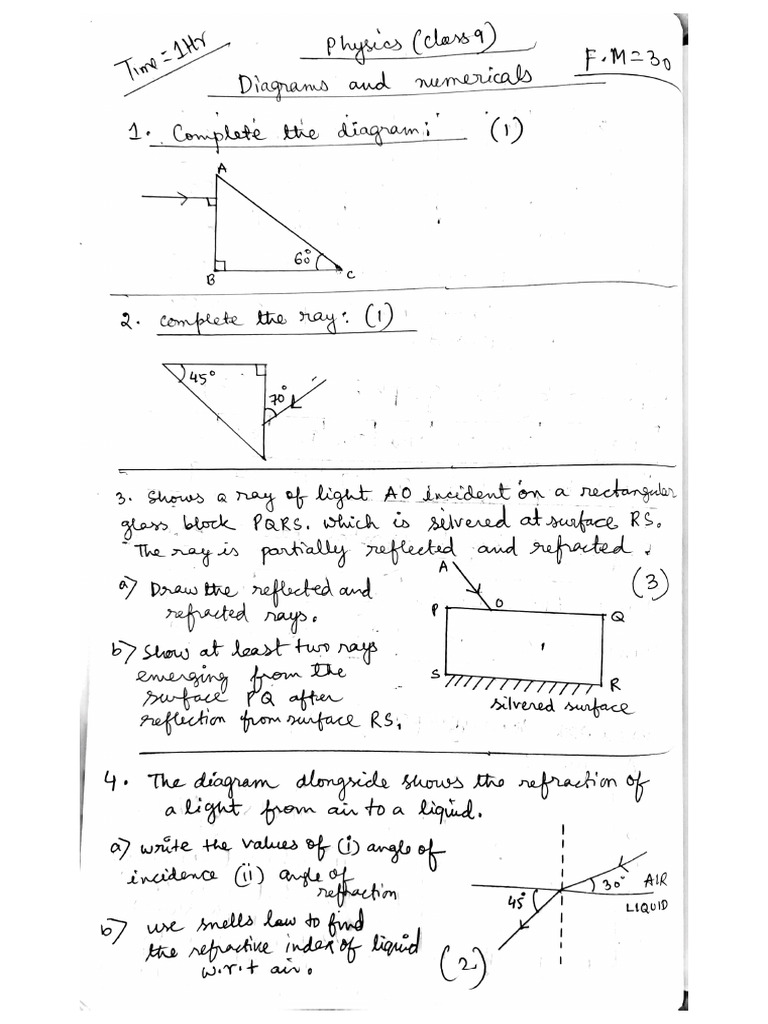 Time = 1Hr
Physics (class 9)
F.M = 30
Diagrams and numericals
1. Complete the diagram: (1)
A
60°
B
C
2. Complete the ray: (1)
45°
70°
3. Shows a ray of light AO incident on a rectangular
glass block PQRS. which is silvered at surface RS.
The ray is partially reflected and refracted.
(3)
a) Draw the reflected and
refracted rays.
b) Show at least two rays
emerging from the
surface PQ after
reflection from surface RS.
A
P
O
Q
S
R
silvered surface
4. The diagram alongside shows the refraction of
a light from air to a liquid.
a) write the values of (i) angle of
incidence (ii) angle of
refraction
b) use snells law to find
the refractive index of liquid
w.r.t air.
(2)
30°
AIR
45°
LIQUID